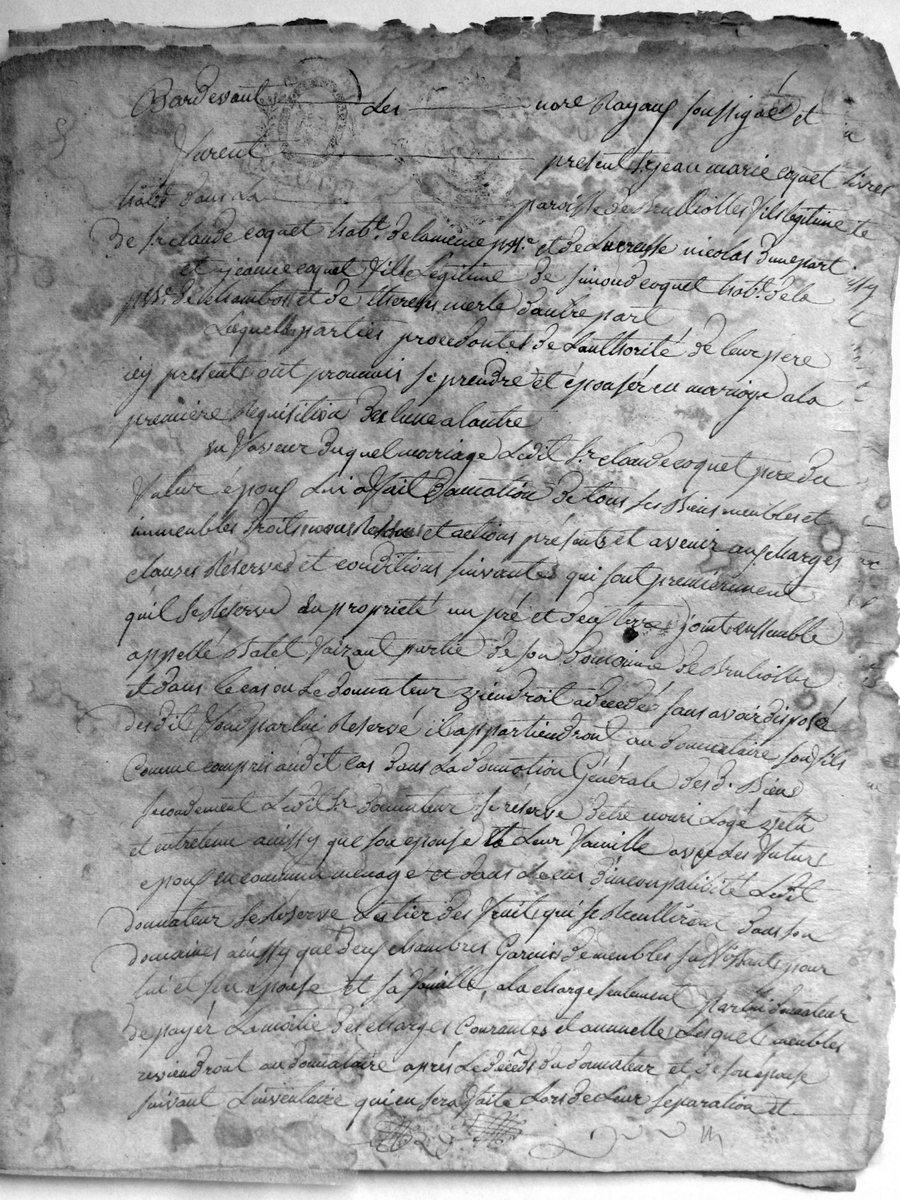 Pardevant les no.re Royaux soussignés et
Furent present sr jean marie coquet
habt. dans la paroisse de Brulliolles fils legitime
de sr claude coquet habt. de la meme psse. et de Lucresse nicolas d'une part
et jeanne coquet fille Legitime de simond coquet habt. de la
psse. de Chambost et de theresse merle d'autre part
Lequels parties procedantes de Lauthorité de leur pere
icy presents ont promis se prendre et épouser en mariage a la
premiere Requisition de Lune a Lautre
en faveur duquel mariage Ledit sr claude coquet pere du
futur époux Lui a fait donnation de tous ses Biens meubles et
immeubles droits noms Raisons et actions présents et avenir aux charges
clauses Réserves et conditions suivantes qui sont premièrement
quil se Reserve en proprieté un pré et deux terres joint ensemble
appellé faizant partie de son domainne de Brulliolles
et dans le cas ou Le donnateur viendroit a decedés sans avoir disposé
desdit fond par lui Reservé, ils appartiendront au donnataire son fils
Comme compris audit cas dans La donnation Générale desd. Biens
secondement Ledit sr donnateur se réserve detre nouri Logé vetu
et entretenu ainssy que son epouse et Leur famille avec Les futurs
epoux en commun menage et dans Le cas d'incompatibité Ledit
donnateur se Reserve Le tier des fruits qui se Reculliront dans son
domaines ainssy que deux chambres Garnies de meubles suffisants pour
lui et son epouse et sa famille, a la charge seulement par lui donnateur
de payer La moitié des charges Courantes et annuelle Lesquels meubles
reviendront au donnataire après Le décès du donnateur et de son epouse
suivant Linventaire qui en sera faite Lors de Leur séparation et